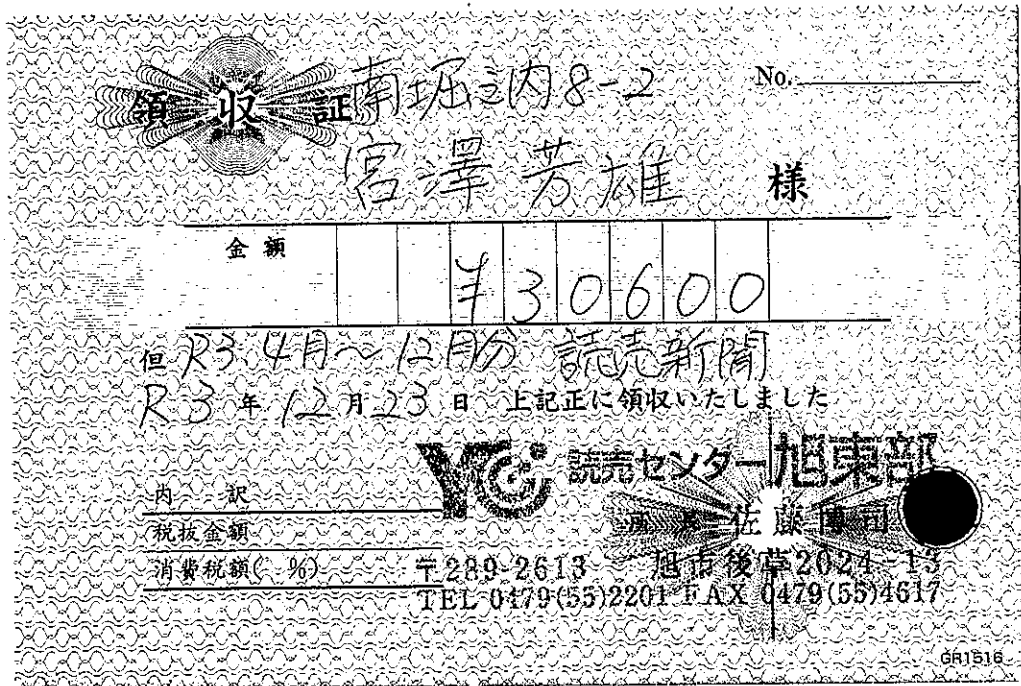 領収証
No.
南堀之内8-2
宮澤芳雄 様
金額 ¥30600
但 R3.4月~12月分 読売新聞
R3年12月23日 上記正に領収いたしました
YC 読売センター旭東部
佐藤
内訳
税抜金額
消費税額( %)
〒289-2613 旭市後草2024-13
TEL 0479(55)2201 FAX 0479(55)4617
GR1516